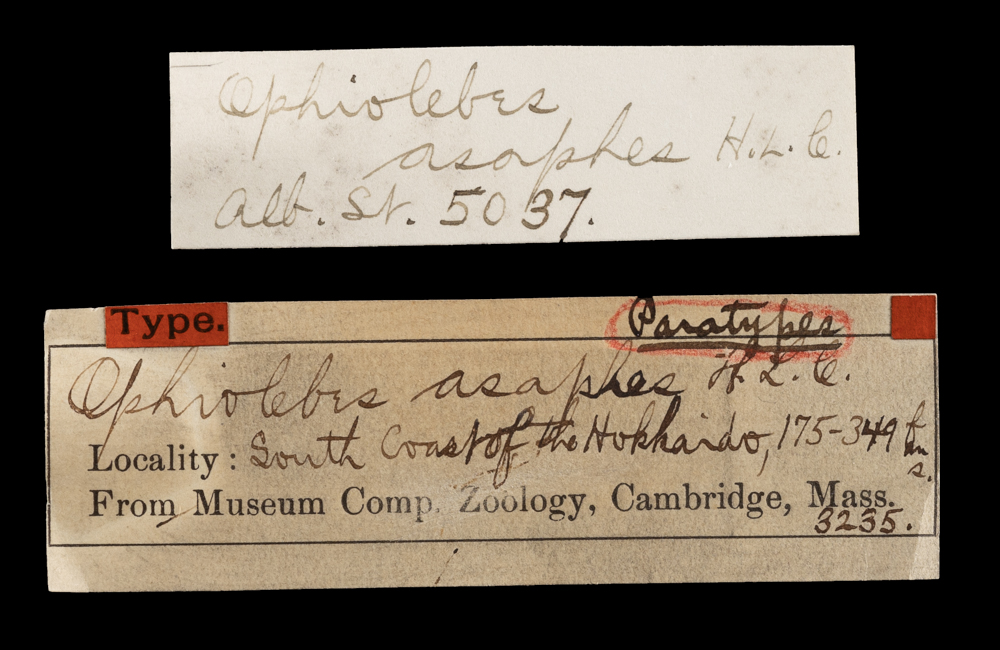 Ophiolebes
asaphes H. L. C.
Alb. St. 5037.
Type.
Paratypes
Ophiolebes asaphes H. L. C.
Locality: South Coast of the Hokkaido, 175-349 fms.
From Museum Comp. Zoology, Cambridge, Mass.
3235.